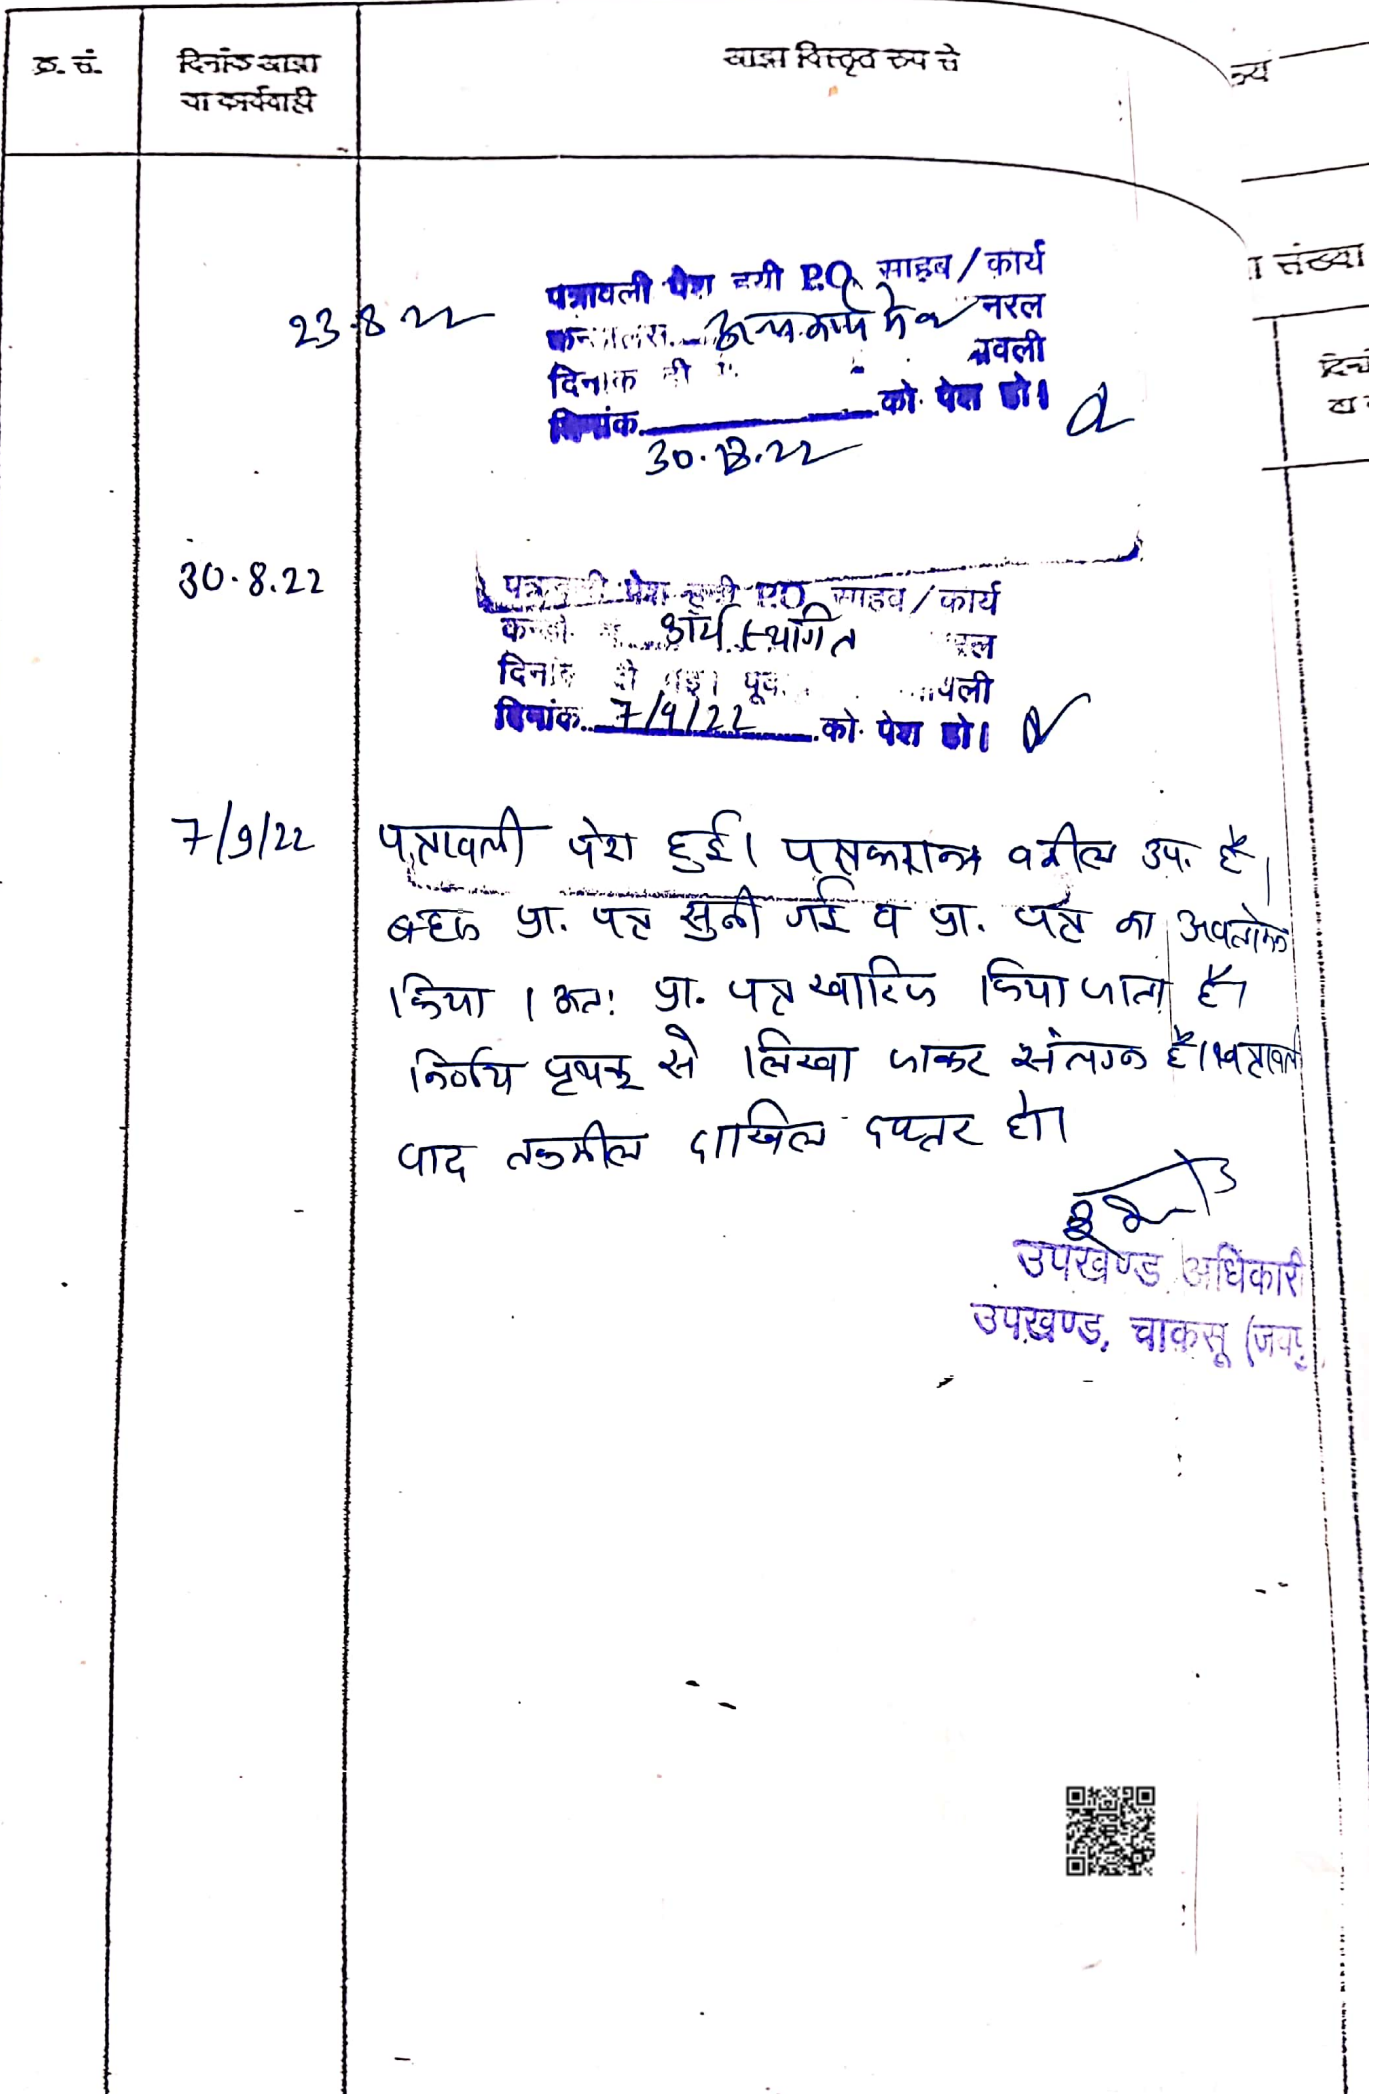 क्र. सं.
दिनांक आज्ञा
या कार्यवाही
आज्ञा विस्तृत रूप से
संख्या
23.8.22
पत्रावली पेश हुयी P.O. साहब / कार्य
अन्य कार्य में नरल
दिनांक वली
दिनांक को पेश हो।
30.8.22
30.8.22
पत्रावली पेश हुयी P.O. साहब / कार्य
कार्य स्थगित
दिनांक
दिनांक 7/9/22 को पेश हो।
7/9/22
पत्रावली पेश हुई। पक्षकारान वकील उप. है।
बहस प्रा. पत्र सुनी गई व प्रा. पत्र का अवलोकन
किया। अतः प्रा. पत्र खारिज किया जाता है।
निर्णय पृथक से लिखा जाकर संलग्न है। पत्रावली
बाद तकमील दाखिल दफ्तर हो।
उपखण्ड अधिकारी
उपखण्ड, चाकसू (जयपु